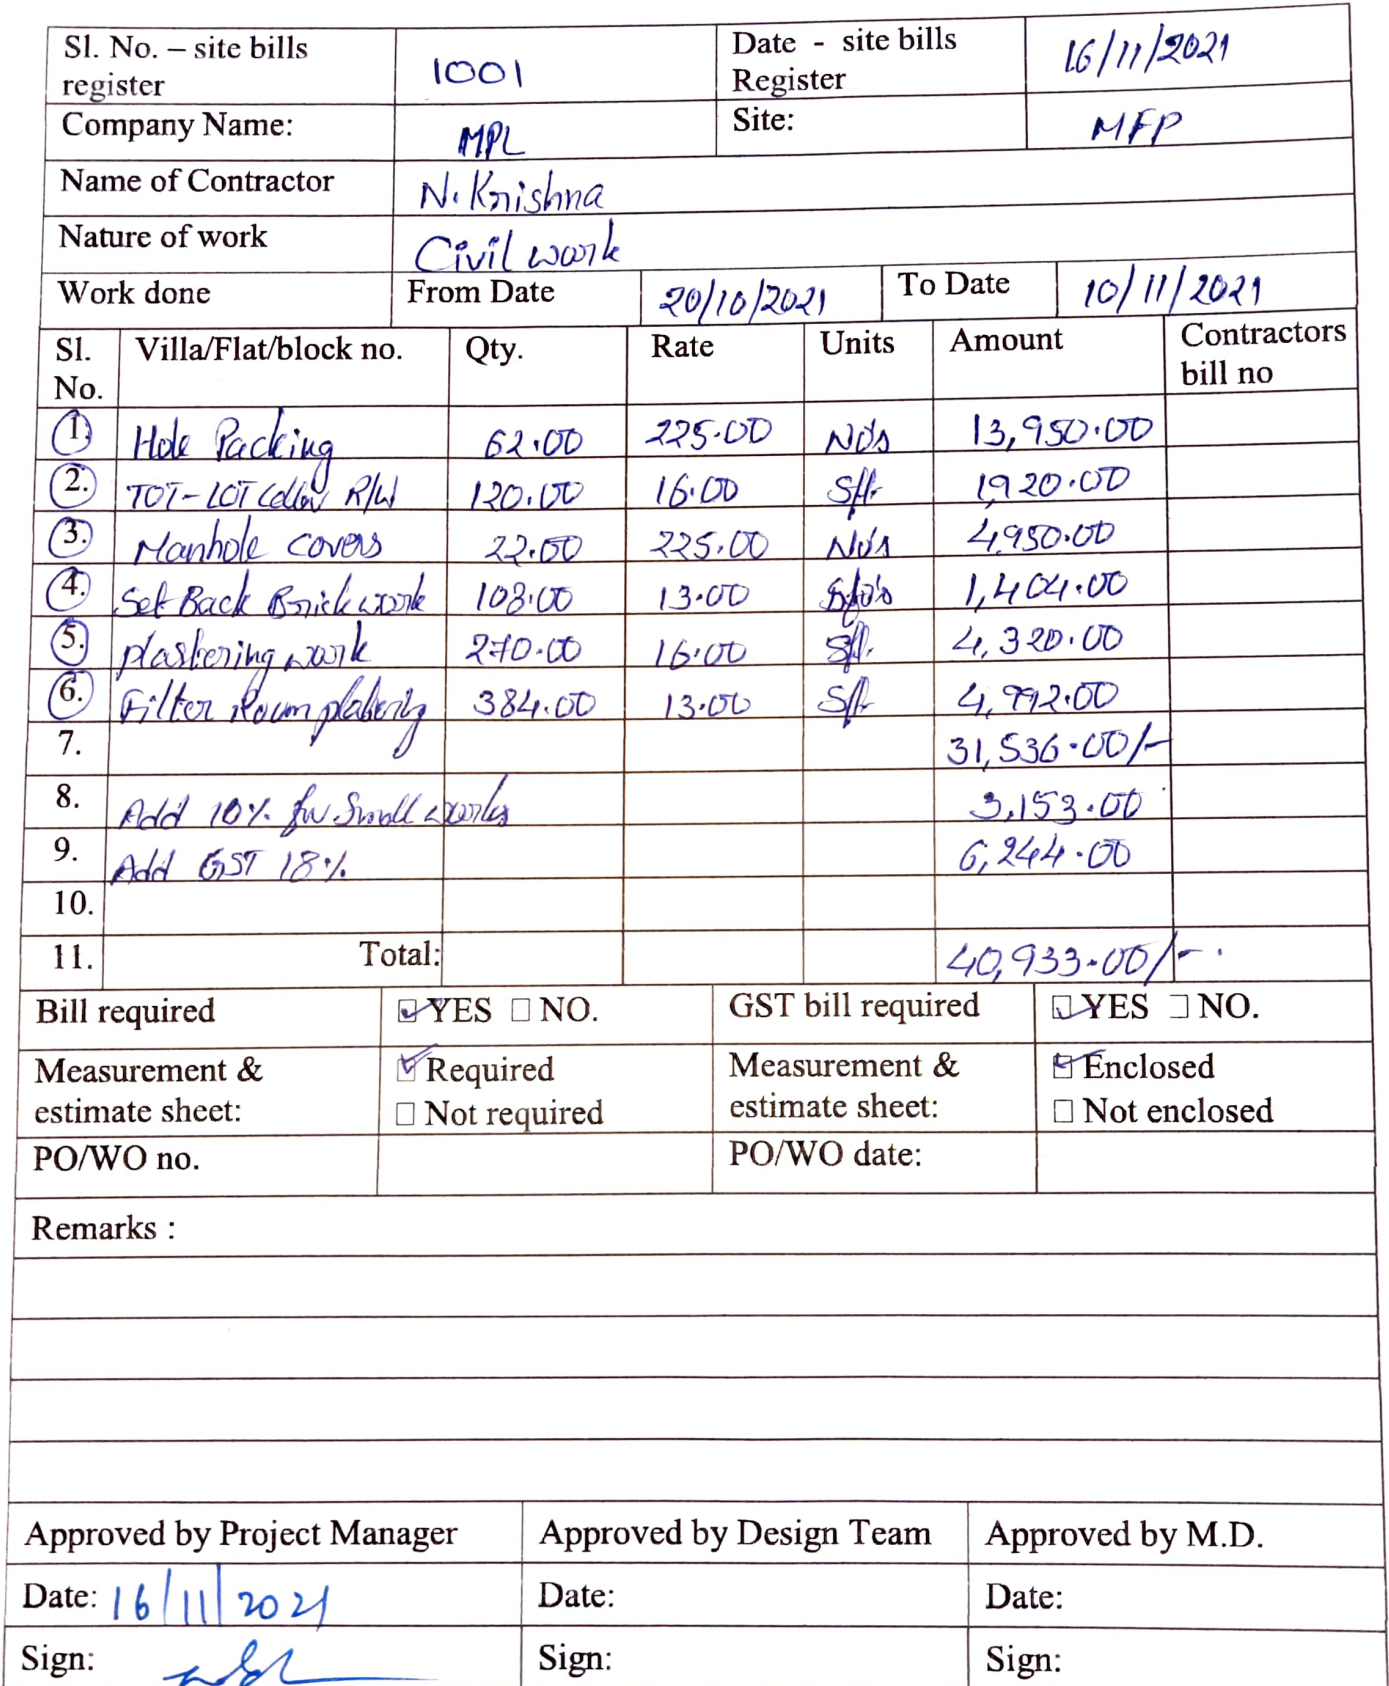 Sl. No. – site bills register 1001 Date - site bills Register 16/11/2021
Company Name: MPL Site: MFP
Name of Contractor N. Krishna
Nature of work Civil work
Work done From Date 20/10/2021 To Date 10/11/2021
Sl. No. Villa/Flat/block no. Qty. Rate Units Amount Contractors bill no
1. Hole Packing 62.00 225.00 No's 13,950.00
2. TOT-LOT R/W 120.00 16.00 Sft. 1,920.00
3. Manhole covers 22.00 225.00 No's 4,950.00
4. Set Back Brick work 108.00 13.00 1,404.00
5. plastering work 270.00 16.00 Sft. 4,320.00
6. Filter Room 384.00 13.00 Sft 4,992.00
7. 31,536.00/-
8. Add 10% for Small works 3,153.00
9. Add GST 18% 6,244.00
10.
11. Total: 40,933.00/-
Bill required YES NO. GST bill required YES NO.
Measurement & estimate sheet: Required Not required Measurement & estimate sheet: Enclosed Not enclosed
PO/WO no. PO/WO date:
Remarks :
Approved by Project Manager Approved by Design Team Approved by M.D.
Date: 16/11/2021 Date: Date:
Sign: Sign: Sign: